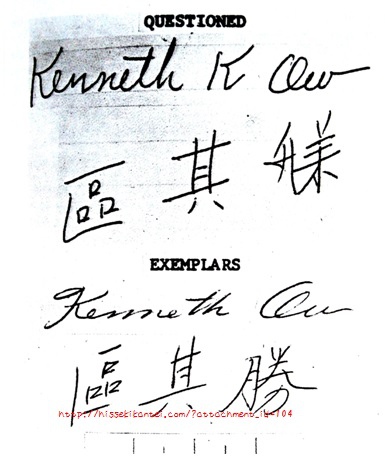 QUESTIONED
Kenneth K Ow
區其
EXEMPLARS
Kenneth Ow
區其勝
http://hissekikantei.com/?attachment_id=104